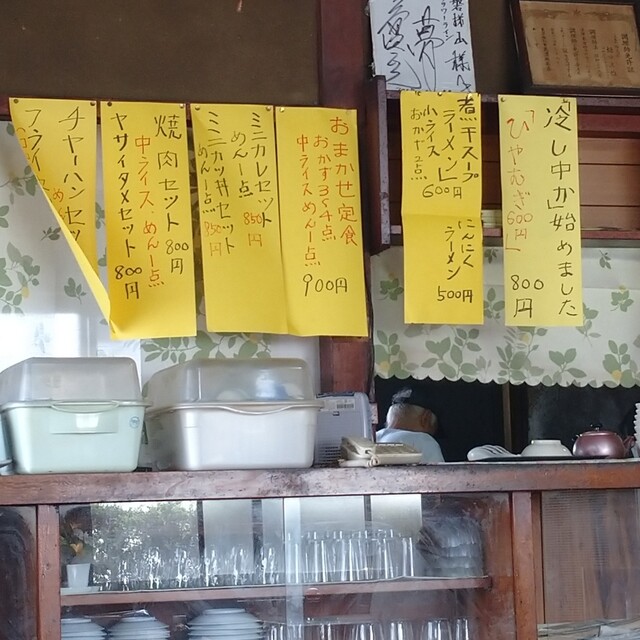 冷し中か始めました
800円
「ひやむぎ600円」
煮干スープ
ラーメン
小ライス
おかず2点
600円
にんにく
ラーメン
500円
おまかせ定食
おかず3〜4点
中ライスめん一点
900円
ミニカレセット
めん一点 850円
ミニカツ丼セット
めん一点 850円
焼肉セット 800円
中ライス、めん一点
ヤサイタメセット 800円
チャーハンセッ
フライ
夢